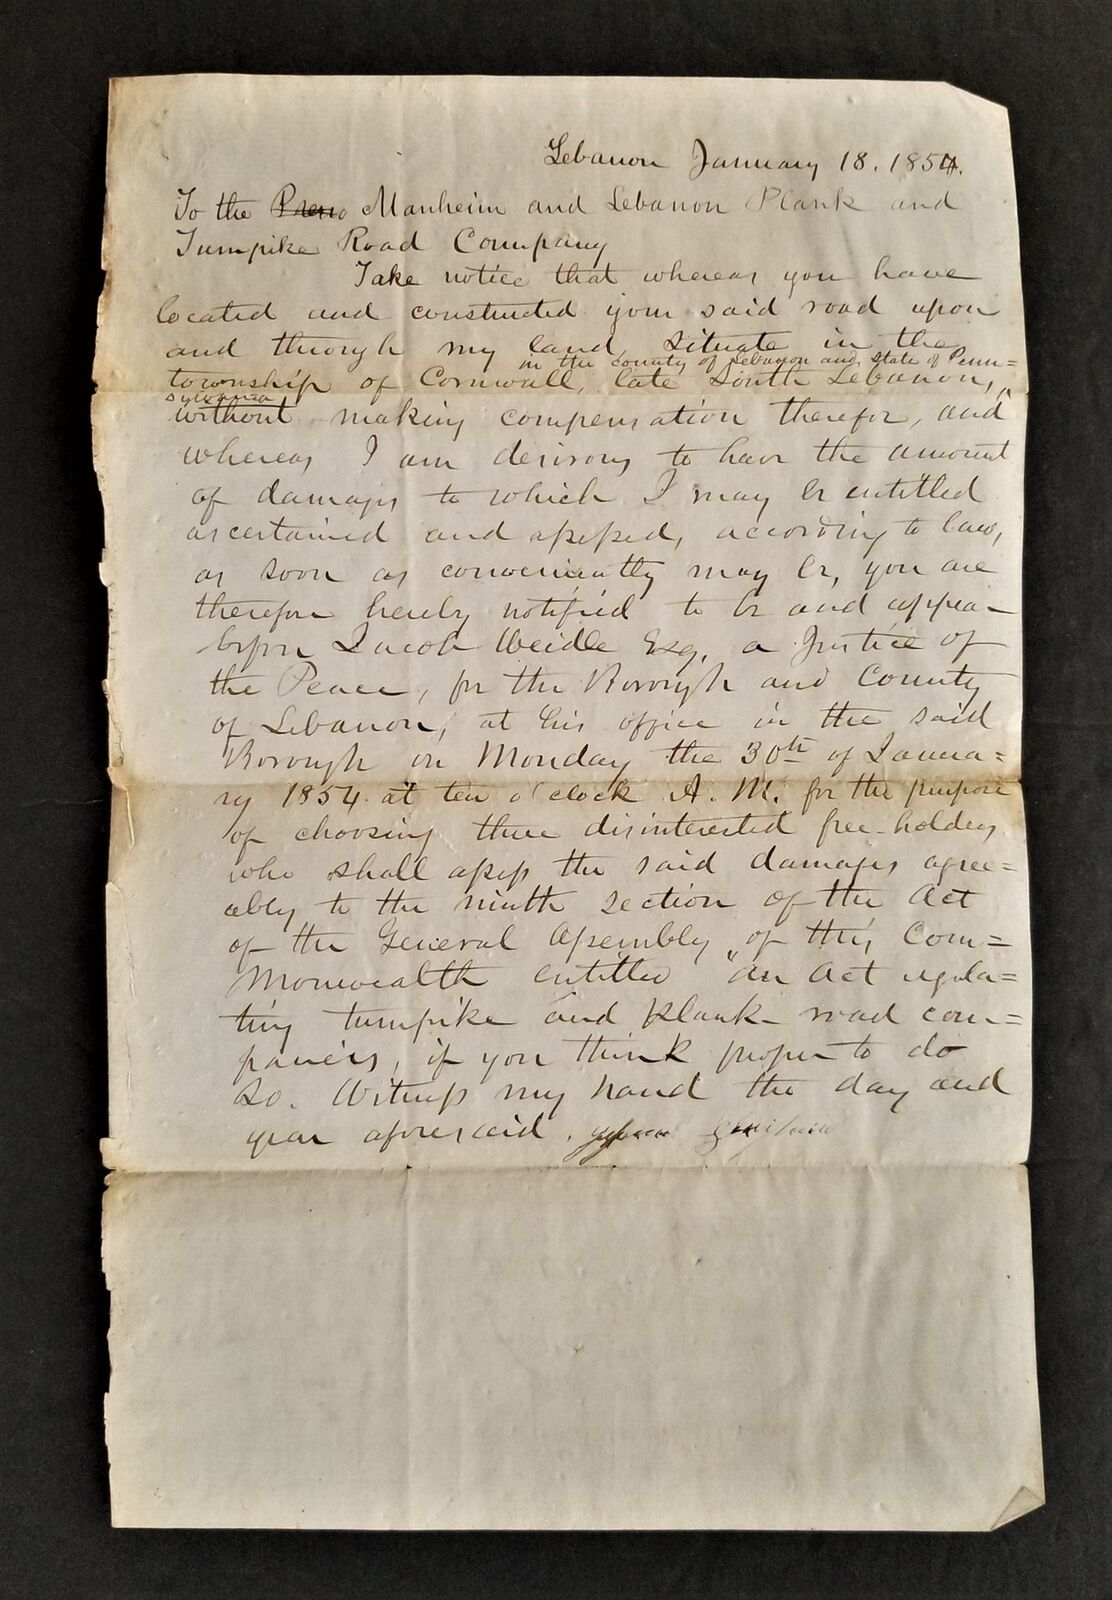 Lebanon January 18. 1854.
To the Manheim and Lebanon Plank and
Turnpike Road Company
Take notice that whereas you have
located and constructed your said road upon
and through my land, situate in the
in the county of Lebanon and State of Penn=
township of Cornwall, late South Lebanon,
sylvania
without making compensation therefor, and
whereas I am desirous to have the amount
of damages to which I may be entitled
ascertained and assessed, according to law,
as soon as conveniently may be, you are
therefore hereby notified to be and appear
before Jacob Weidle Esq. a Justice of
the Peace, for the Borough and County
of Lebanon, at his office in the said
Borough on Monday the 30th of Janua=
ry 1854 at ten o'clock A. M. for the purpose
of choosing three disinterested free-holders
who shall assess the said damages agree=
ably to the ninth section of the Act
of the General Assembly of this Com=
monwealth entitled "An Act regula=
ting turnpike and plank road com=
panies, if you think proper to do
so. Witness my hand the day and
year aforesaid.